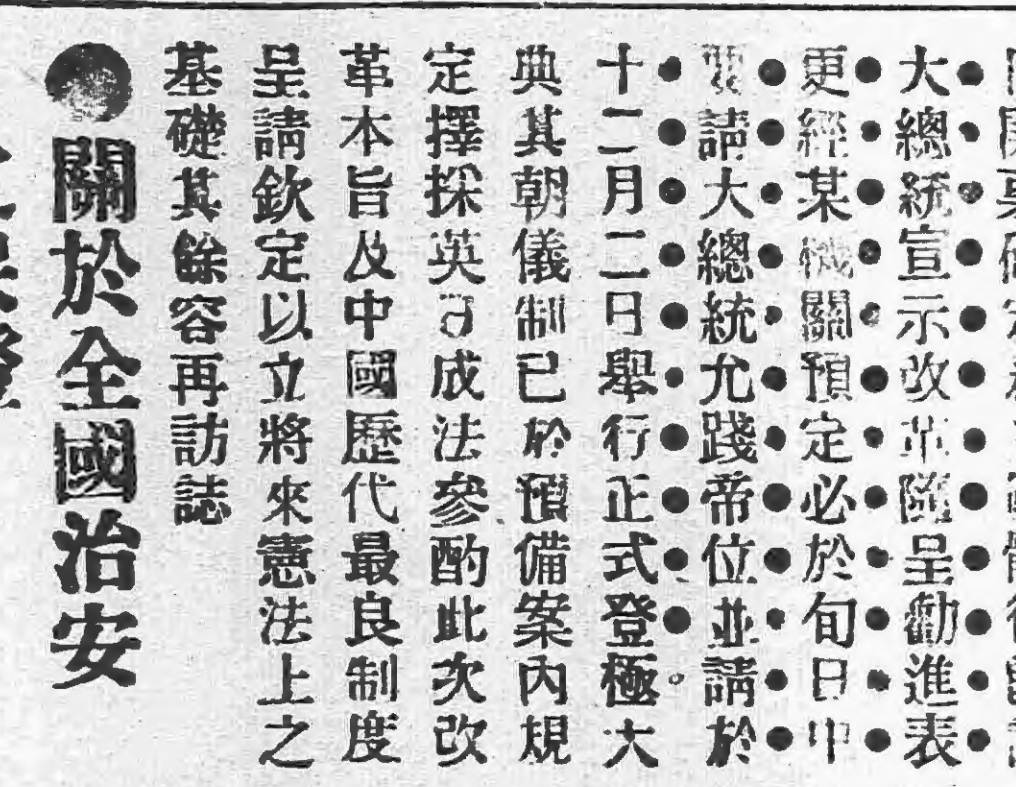 大總統宣示改革隨呈勸進表
更經某機關預定必於旬日中
要請大總統允踐帝位並請於
十二月二日舉行正式登極大
典其朝儀制已於預備案內規
定擇採英成法參酌此次改
革本旨及中國歷代最良制度
呈請欽定以立將來憲法上之
基礎其餘容再訪誌
●關於全國治安